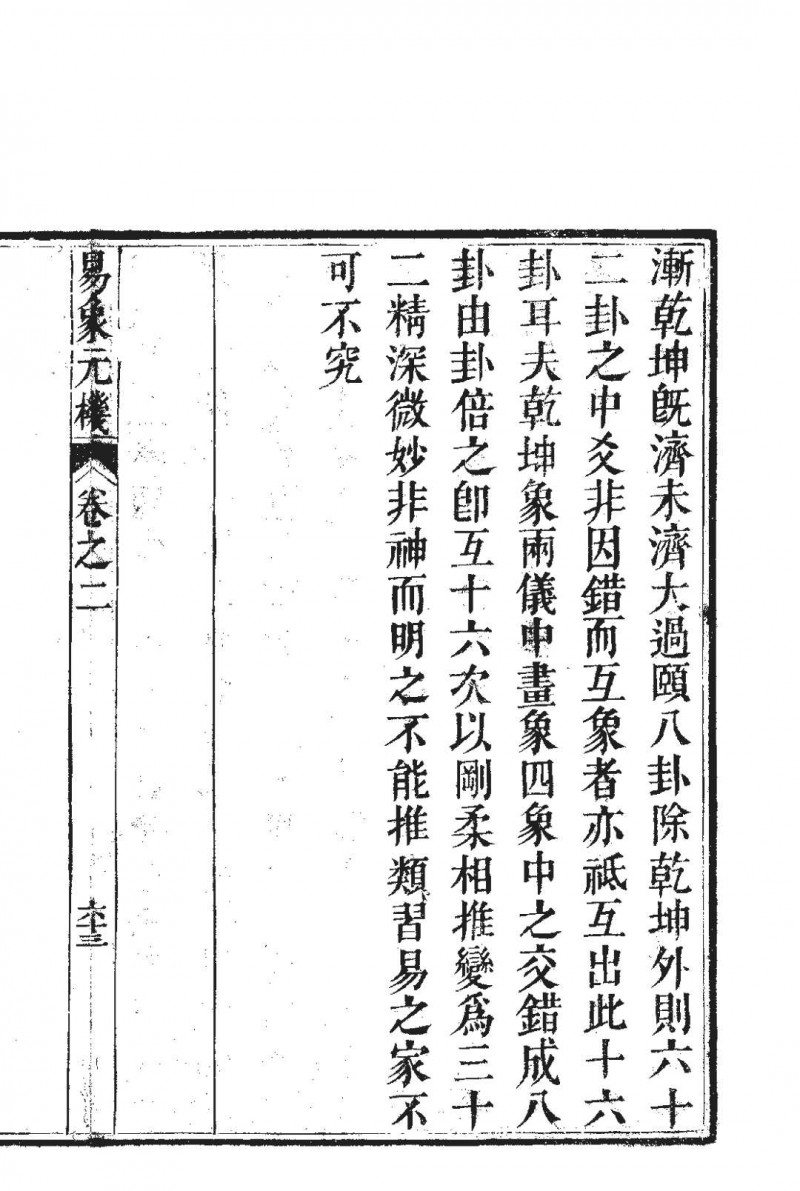 漸乾坤旣濟未濟大過頤八卦除乾坤外則六十
二卦之中爻非因錯而互象者亦祗互出此十六
卦耳夫乾坤象兩儀中畫象四象中之交錯成八
卦由卦倍之卽互十六次以剛柔相推變爲三十
二精深微妙非神而明之不能推類習易之家不
可不究
易象元機
卷之二
六十三